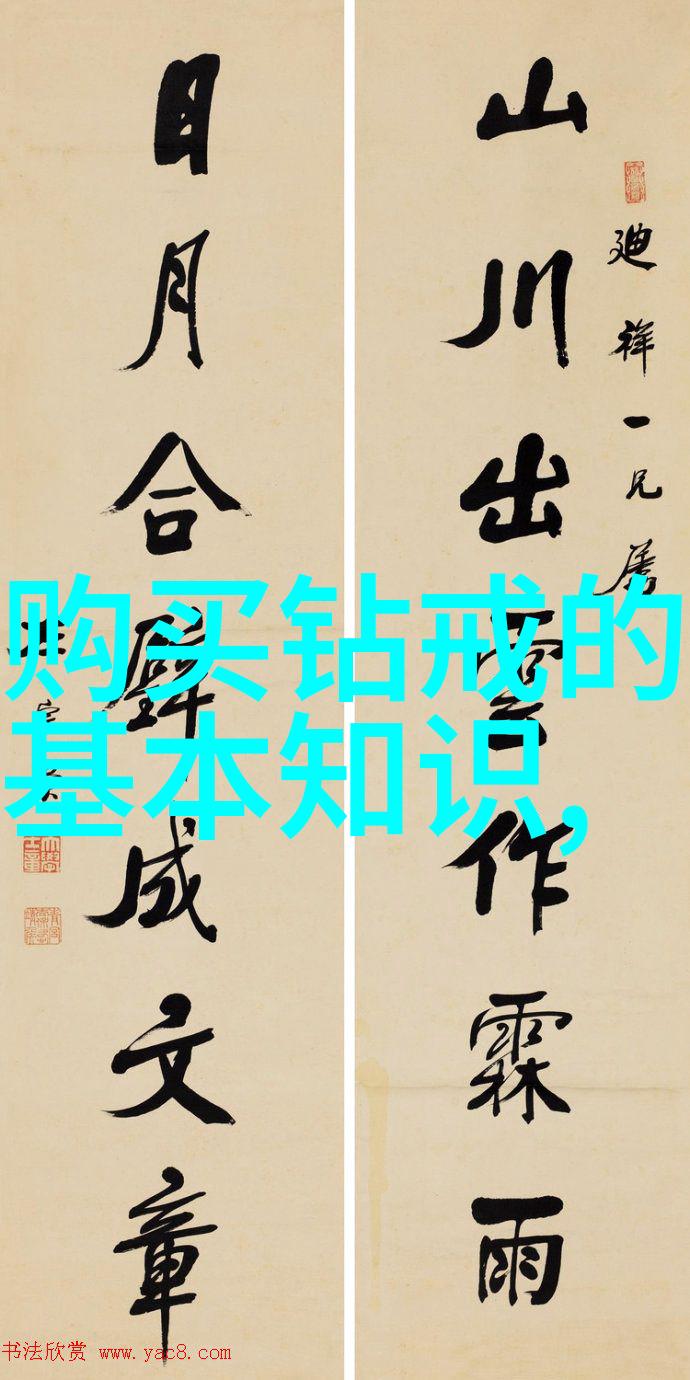 山川出雲作霖雨
廸祥一兄屬
日月合璧成文章
购买钻戒的
基本知识,
书法欣赏 www.yac8.com